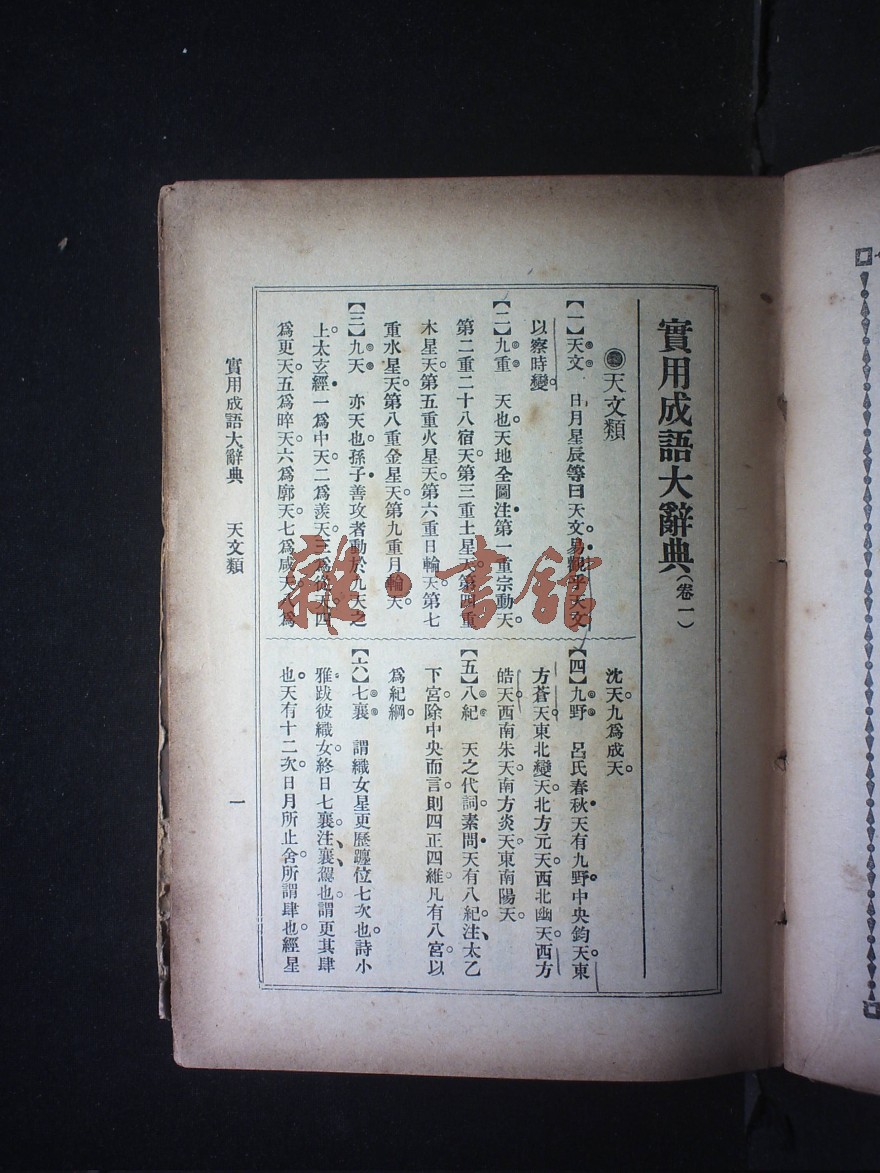 實用成語大辭典(卷一)
天文類
【一】天文 日月星辰等曰天文。易觀乎天文
以察時變。
【二】九重 天也。天地全圖注第一重宗動天。
第二重二十八宿天。第三重土星天。第四重
木星天。第五重火星天。第六重日輪天。第七
重水星天。第八重金星天。第九重月輪天。
【三】九天 亦天也。孫子善攻者動於九天之
上。太玄經一爲中天。二爲羨天。三爲從天。四
爲更天。五爲晬天。六爲廓天。七爲咸天。八爲
沈天。九爲成天。
【四】九野 呂氏春秋天有九野。中央鈞天。東
方蒼天。東北變天。北方元天。西北幽天。西方
皓天。西南朱天。南方炎天。東南陽天。
【五】八紀 天之代詞。素問天有八紀。注、太乙
下宮除中央而言。則四正四維。凡有八宮。以
爲紀綱。
【六】七襄 謂織女星更歷躔位七次也。詩小
雅跂彼織女。終日七襄。注、襄、駕也。謂更其肆
也。天有十二次。日月所止舍。所謂肆也。經星
實用成語大辭典 天文類
一
雜·書館